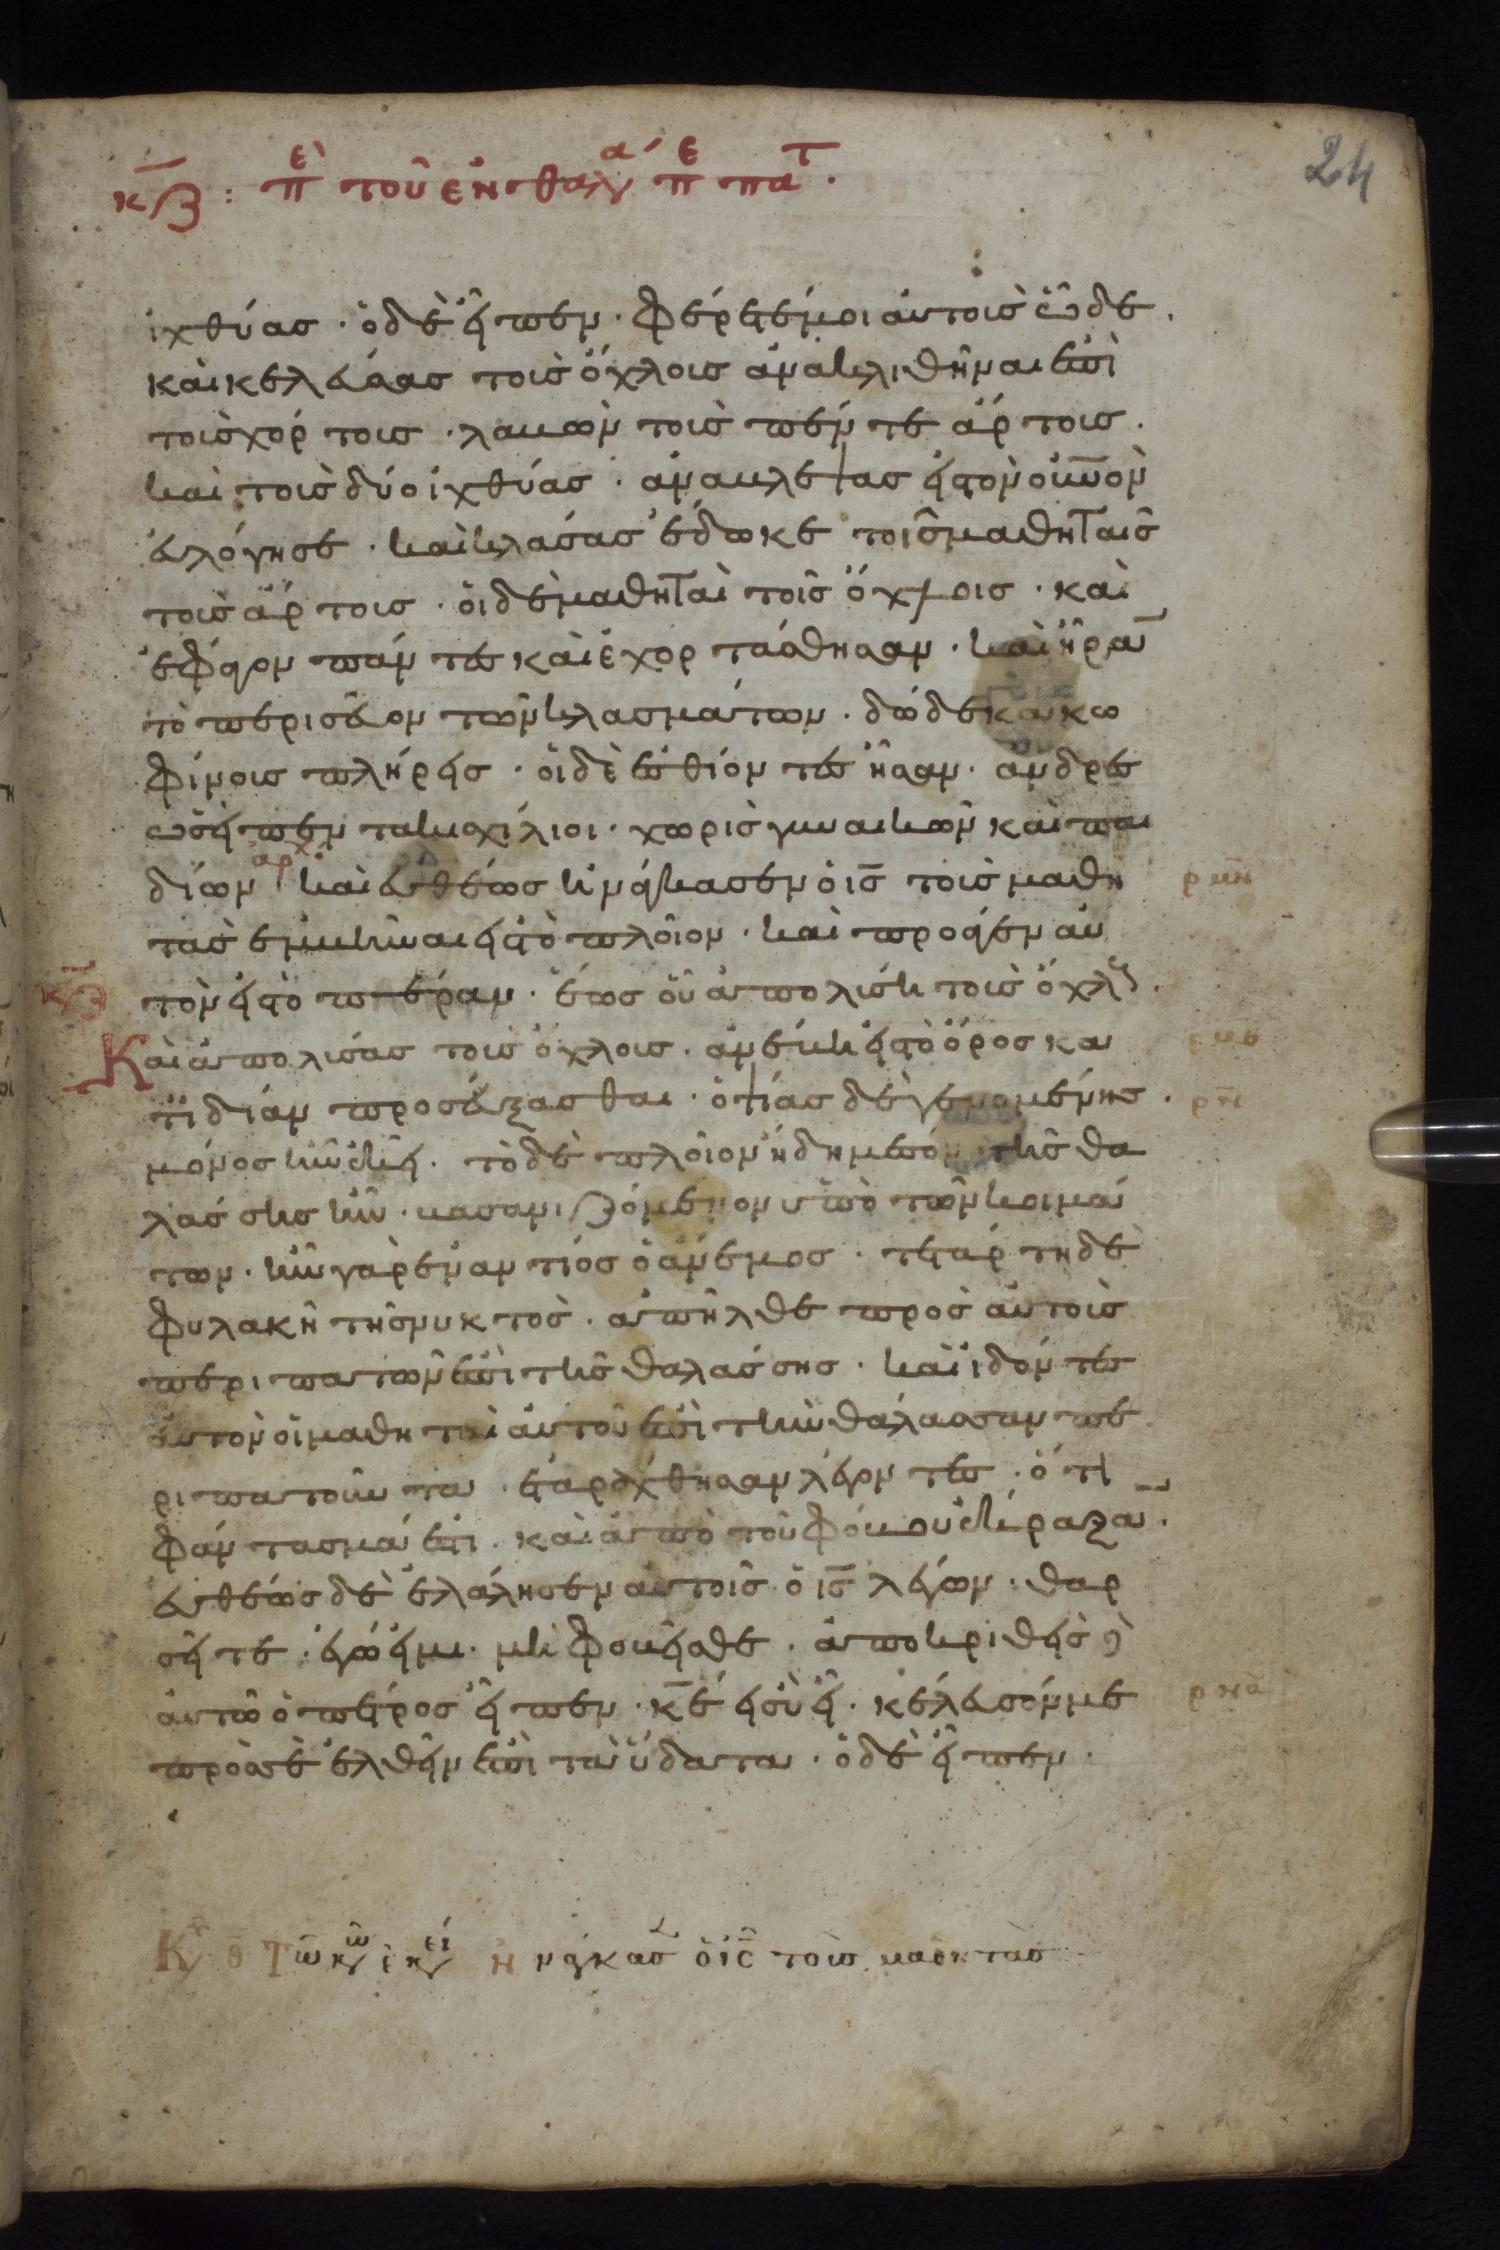 κζ : πε του εν θαλα πε πατ
24
ἰχθύας · ὁ δὲ εἶπεν · φέρετέ μοι αὐτοὺς ὧδε .
καὶ κελεύσας τοὺς ὄχλους ἀνακλιθῆναι ἐπὶ
τοὺς χόρτους · λαβὼν τοὺς πέντε ἄρτους .
καὶ τοὺς δύο ἰχθύας · ἀναβλέψας εἰς τὸν οὐνον
εὐλόγησε · καὶ κλάσας ἔδωκε τοῖς μαθηταῖς
τοὺς ἄρτους · οἱ δὲ μαθηταὶ τοῖς ὄχλοις · καὶ
ἔφαγον πάντες καὶ ἐχορτάσθησαν · καὶ ἦραν
τὸ περισεῦον τῶν κλασμάτων · δώδεκα κο
φίνους πλήρεις · οἱ δὲ ἐσθίοντες ἦσαν · ἄνδρες
ὡσεὶ πεντακισχίλιοι · χωρὶς γυναικῶν καὶ παι
δίων αρχ καὶ εὐθέως ἠνάγκασεν ὁ ις τοὺς μαθη
ρμη
τὰς ἐμβῆναι εἰς τὸ πλοῖον · καὶ προάγειν αὐ
κζ
τὸν εἰς τὸ πέραν · ἕως οὗ ἀπολύση τοὺς ὄχλους .
Καὶ ἀπολύσας τοὺς ὄχλους · ἀνέβη εἰς τὸ ὄρος κα
ρμθ
τ ἰδίαν προσεύξασθαι · ὀψίας δὲ γενομένης .
ρν
μόνος ἦν ἐκεῖ · τὸ δὲ πλοῖον ἤδη μέσον τῆς θα
λάσσης ἦν · βασανιζόμενον ὑπὸ τῶν κυμά
των · ἦν γὰρ ἐναντίος ὁ ἄνεμος · τετάρτη δὲ
φυλακῆ τῆς νυκτὸς · ἀπῆλθε πρὸς αὐτοὺς
περιπατῶν ἐπὶ τῆς θαλάσσης · καὶ ἰδόντες
αὐτὸν οἱ μαθηταὶ αὐτοῦ ἐπὶ τὴν θάλασσαν πε
ριπατοῦντα · ἐταράχθησαν λέγοντες · ὅτι
φάντασμά ἐστι · καὶ ἀπὸ τοῦ φόβου ἔκραξαν .
εὐθέως δὲ ἐλάλησεν αὐτοῖς ὁ ις λέγων · θαρ
σεῖτε · ἐγώ εἰμι · μὴ φοβεῖσθε · ἀποκριθεὶς δὲ
αὐτῶ ὁ πέτρος εἶπεν · κε εἰ σὺ εἶ · κέλευσόν με
ρνα
πρὸς σὲ ἐλθεῖν ἐπὶ τὰ ὕδατα · ὁ δὲ εἶπεν ·
Κυ θ Τῶ κρῶ ἐκεί ἠνάγκασεν ὁ ις τοὺς μαθητὰς